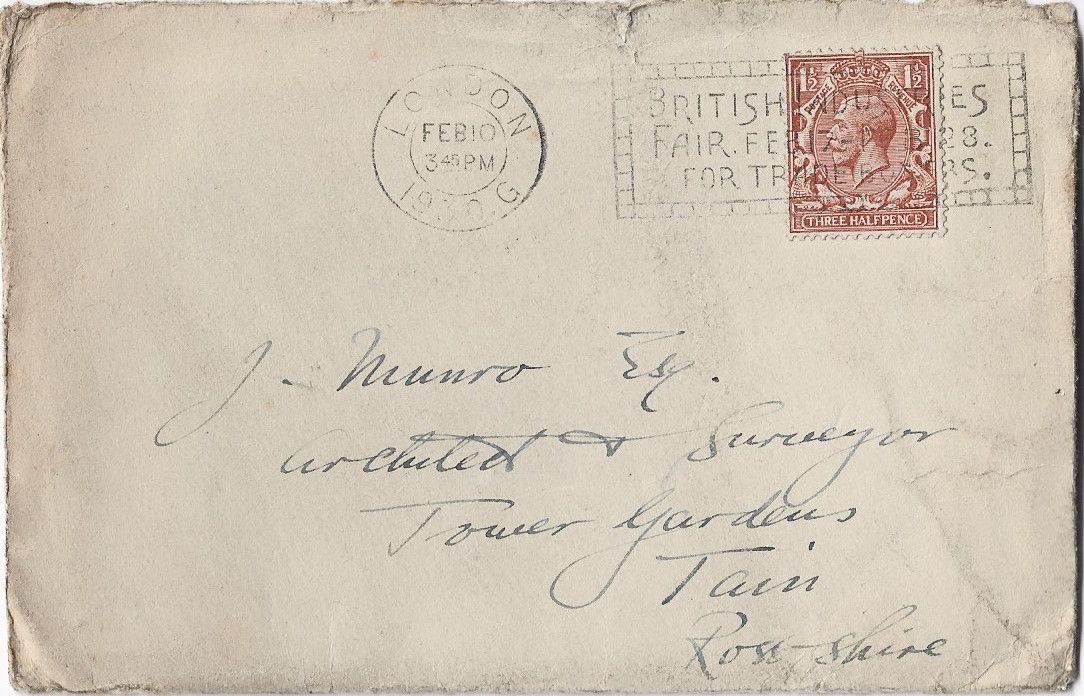 LONDON
FEB 10
3 45 PM
1930. G
BRITISH INDUSTRIES
FAIR. FEB 28.
FOR TRADE BUYERS.
1½ 1½
POSTAGE REVENUE
THREE HALFPENCE
J. Munro Esq.
Architect & Surveyor
Tower Gardens
Tain
Ross-shire